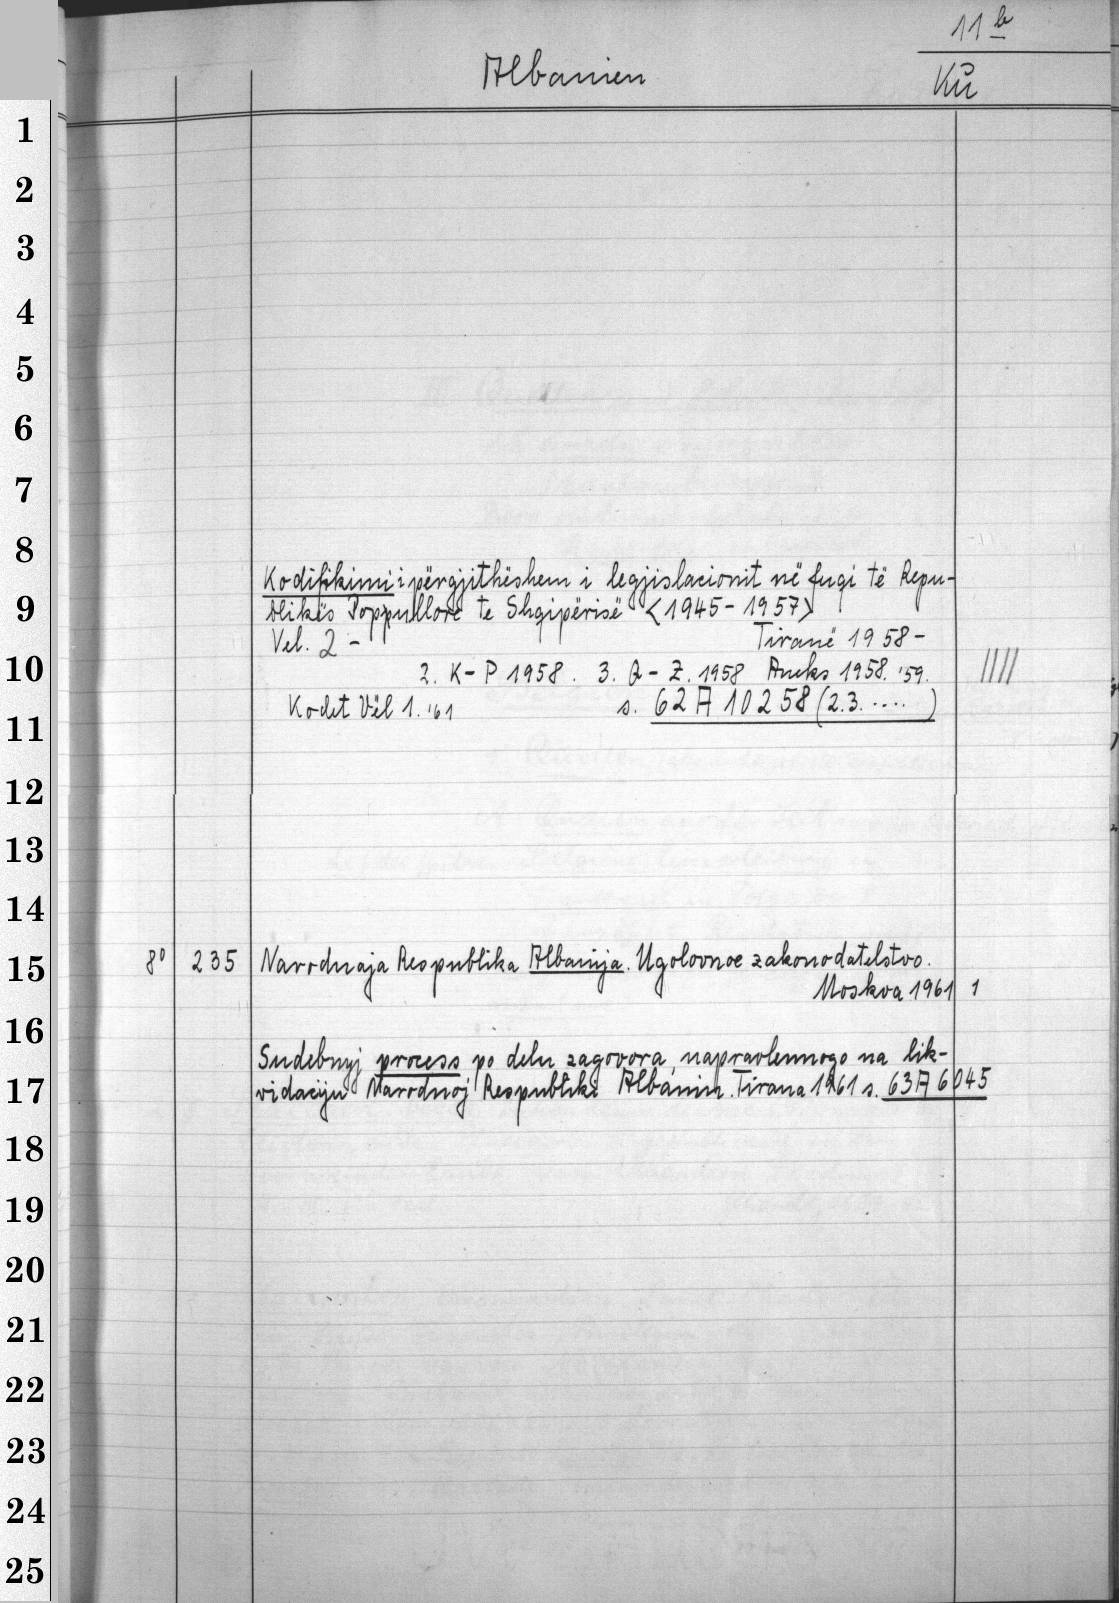 11 b
Albanien
Kü
1
2
3
4
5
6
7
8
Kodifikimi i përgjithëshem i legjislacionit në fuqi të Repu-
9
blikës Poppullore te Shqipërisë <1945-1957>
Vel. 2 - Tiranë 1958-
10
2. K-P 1958. 3. Q-Z. 1958 Aneks 1958. '59. ////
Kodet Vël 1. '61 s. 62 A 10258 (2.3. ....)
11
12
13
14
15
8° 235 Narodnaja Respublika Albanija. Ugolovnoe zakonodatelstvo.
Moskva 1961 1
16
Sudebnyj process po delu zagovora, napravlennogo na lik-
17
vidaciju Narodnoj Respubliki Albanii. Tirana 1961 s. 63 A 6045
18
19
20
21
22
23
24
25